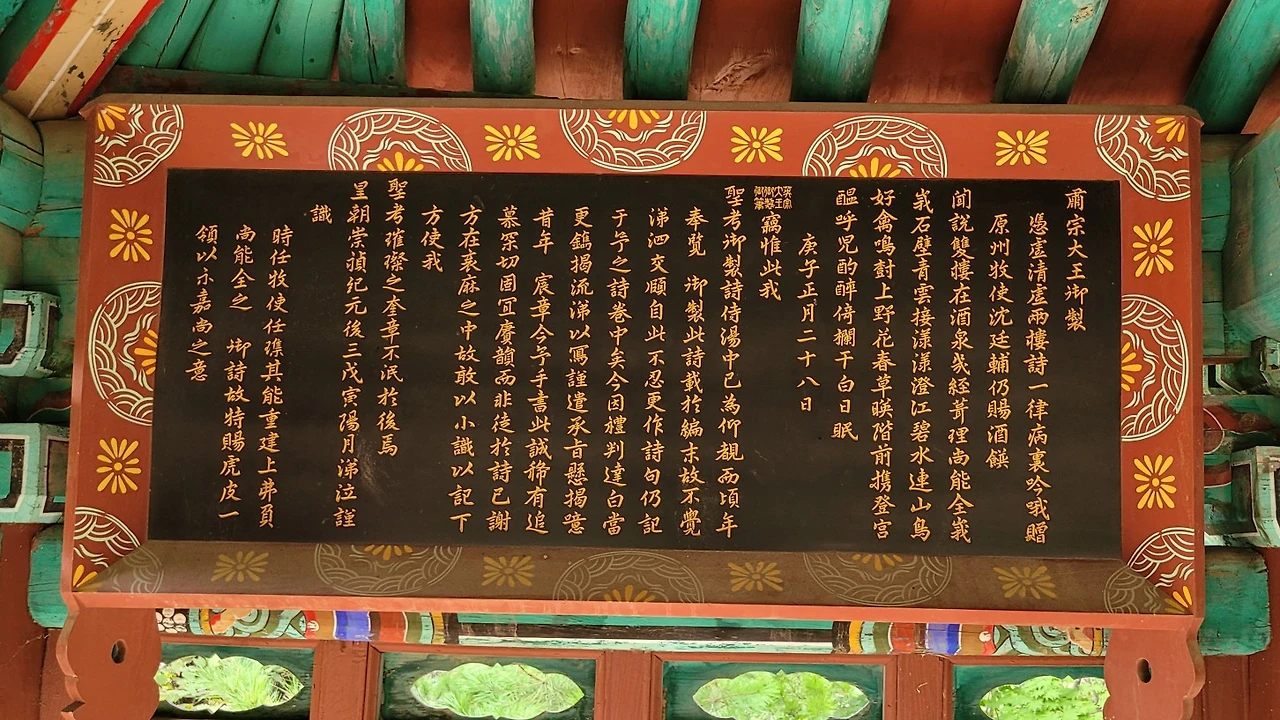 肅宗大王御製
憑虛清虛兩樓詩一律病裏吟哦贈
原州牧使沈廷輔仍賜酒饌
聞說雙樓在酒泉幾經葺理尚能全峩
峩石壁青雲接漾漾澄江碧水連山鳥
好禽鳴對上野花春草暎階前携登宮
醞呼児酌醉倚欄干白日眠
庚子正月二十八日
英宗大王御製御筆
竊惟此我
聖考御製詩侍湯中已為仰覩而頃年
奉覧 御製此詩載於編末故不覺
涕泗交頤自此不忍更作詩句仍記
于予之詩巻中矣今因禮判達白當
更鐫揭流涕以寫謹遣承旨懸揭噫
昔年 宸章今予手書此誠稀有追
慕冞切固宜賡韻而非徒於詩已謝
方在衰麻之中故敢以小識以記下
方使我
聖考璀璨之奎章不泯於後焉
皇朝崇禎紀元後三戊寅陽月涕泣謹
識
時任牧使任其能重建上弗負
尚能全之 御詩故特賜虎皮一
領以示嘉尚之意